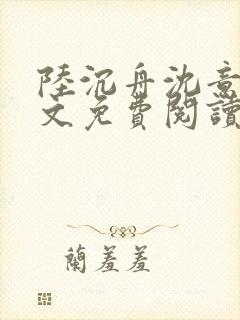 陸沉舟沈意
文免費閱讀
蘭羞羞